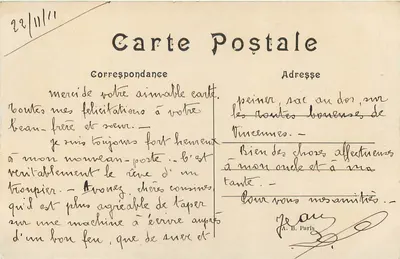 22/11/11
Carte Postale
Correspondance
Adresse
merci de votre aimable carte.
Toutes mes félicitations à votre
beau-frère et sœur. –
Je suis toujours fort heureux
à mon nouveau poste. – C'est
véritablement le rêve d'un
troupier. – Avouez, chères cousines,
qu'il est plus agréable de taper
sur une machine à écrire auprès
d'un bon feu, que de suer et
peiner, sac au dos, sur
les routes boueuses de
Vincennes. –
Bien des choses affectueuses
à mon oncle et à ma
tante. –
Pour vous mes amitiés. –
Jean
A. B. Paris